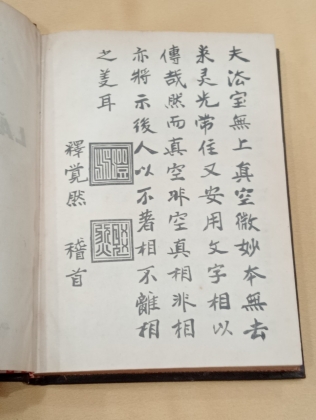 夫法宝無上真空微妙本無去
来灵光常住又安用文字相以
傳哉然而真空非空真相非相
亦將示後人以不著相不離相
之義耳
釋覚然 稽首